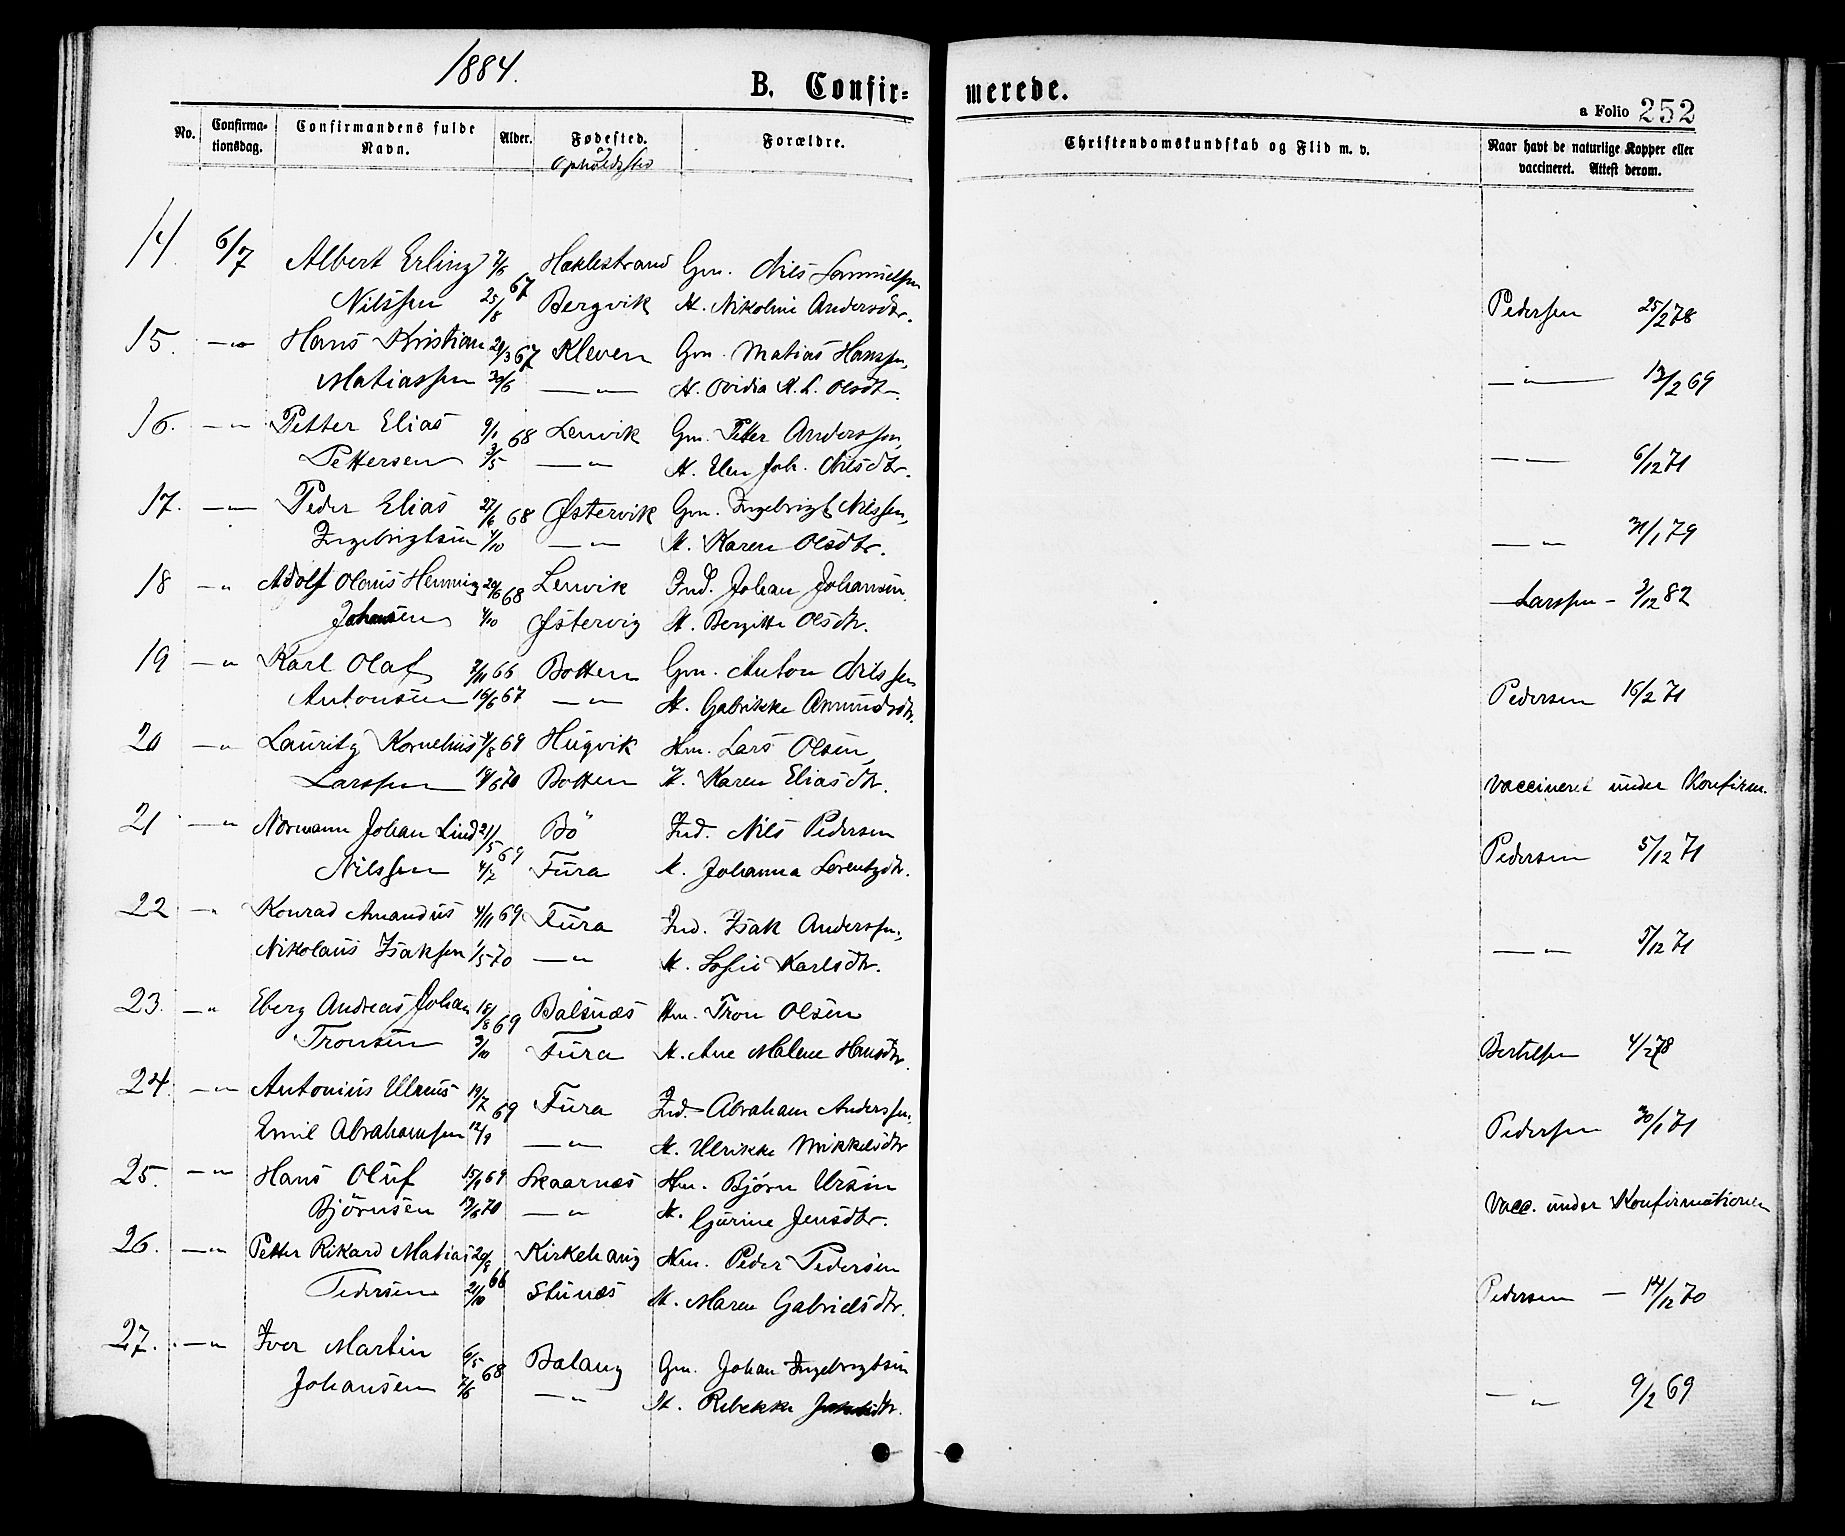 1884.
B. Confir= merede.
a Folio 252
No. Confirma-tionsdag. Confirmandens fulde Navn. Alder. Fødested. og Opholdssted Forældre. Christendomskundskab og Flid m. v. Naar havt de naturlige Kopper eller vaccineret. Attest derom.
14 6/7 Albert Erling 7/6 67 Haklestrand Gm. Nils Samuelsen
Nilssen 25/8 Bergvik H. Nikoline Andersdtr. Pedersen 25/2 78
15. —"— Hans Kristian 29/3 67 Kleven Gm. Matias Hanssen,
Matiassen 30/6 —"— H. Ovidia K. L. Olsdtr. —"— 13/2 69
16. —"— Petter Elias 9/1 68 Lenvik Gm. Petter Anderssen,
Pettersen 3/5 —"— H. Elen Joh. Nilsdtr. —"— 6/12 71
17. —"— Peder Elias 27/6 68 Østervik Gm. Ingebrigt Nilssen,
Ingebrigtsen 4/10 —"— H. Karen Olsdtr. —"— 31/1 79
18 —" Adolf Olaus Henning 20/6 68 Lenvik Ind. Johan Johansen,
Johansen 4/10 Østervig H. Bergitte Olsdtr. Larssen - 3/12 82
19 —" Karl Olaf 7/11 66 Botten Gm. Anton Nilssen
Antonsen 16/6 67 —"— H. Gabrikke Amundsdtr. Pedersen 16/2 71
20 —" Lauritz Kornelius 4/8 69 Hugvik Hm. Lars Olsen,
Larssen 19/6 70 Botten H. Karen Eliasdtr. vaccineret under Konfirm.
21 —" Normann Johan Lind 21/5 69 Bö Ind. Nils Pedersen
Nilssen 4/7 Fura H. Johanna Lorentzdtr. Pedersen 5/12 71
22 —" Konrad Amandus 4/11 69 Fura Ind. Isak Anderssen,
Nikolaus Isaksen 1/5 70 —"— H. Sofie Karlsdtr. —"— 5/12 71
23. —" Eberg Andreas Johan 18/8 69 Balsnæs Hm. Tron Olsen
Tronsen 3/10 Fura H. Ane Malene Hansdtr. Bertelsen 4/2 78
24. —" Antonius Ulreus 19/7 69 Fura Ind. Abraham Anderssen,
Emil Abrahamsen 12/9 —"— H. Ulrikke Mikkelsdtr Pedersen 30/1 71
25. —" Hans Oluf 15/9 69 Skaarnæs Hm. Bjørn Ursin
Björnsen 19/6 70 —"— H. Gurine Jensdtr. Vacc. under Konfirmationen
26. —" Petter Rikard Matias 20/8 66 Kirkehaug Hm. Peder Pedersen
Pedersen 21/10 Stunæs H. Maren Gabrielsdtr. Pedersen — 14/12 70
27. —" Iver Martin 6/5 68 Balaug Gm. Johan Ingebrigtsen
Johansen 7/6 —"— H. Rebekka —"— 9/2 69